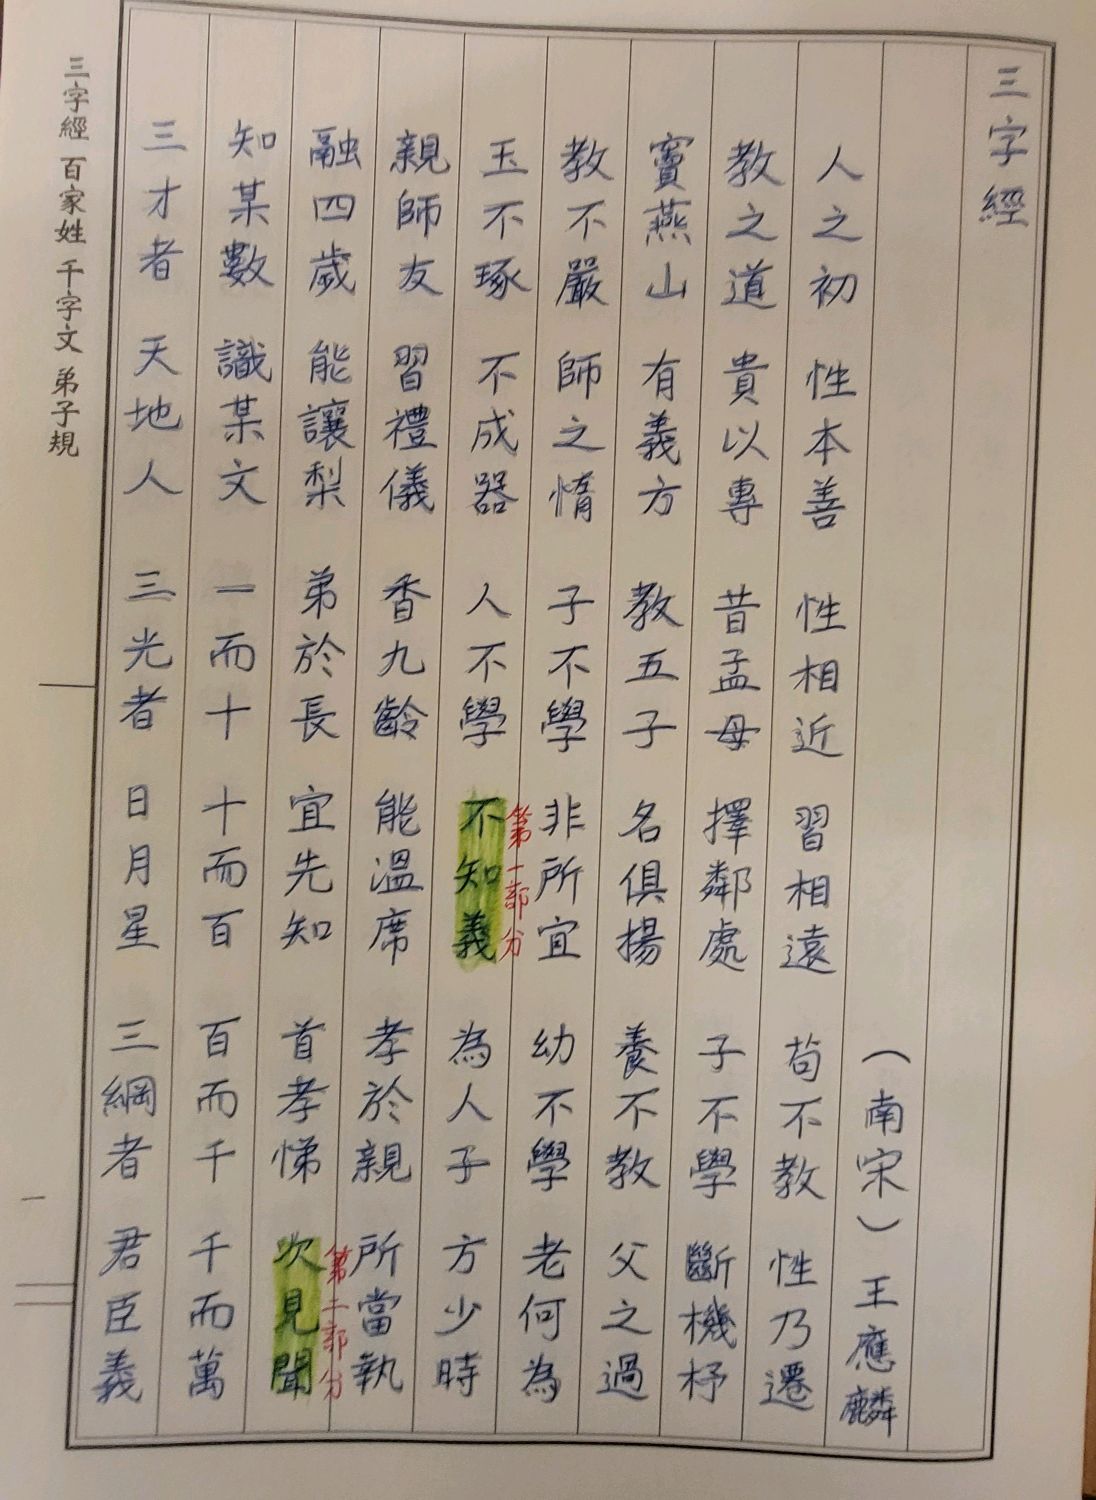 三字經
（南宋）王應麟
人之初 性本善 性相近 習相遠 苟不教 性乃遷
教之道 貴以專 昔孟母 擇鄰處 子不學 斷機杼
竇燕山 有義方 教五子 名俱揚 養不教 父之過
教不嚴 師之惰 子不學 非所宜 幼不學 老何為
玉不琢 不成器 人不學 不知義 為人子 方少時
第一部分
親師友 習禮儀 香九齡 能溫席 孝於親 所當執
融四歲 能讓梨 弟於長 宜先知 首孝悌 次見聞
第二部分
知某數 識某文 一而十 十而百 百而千 千而萬
三才者 天地人 三光者 日月星 三綱者 君臣義
三字經 百家姓 千字文 弟子規
一